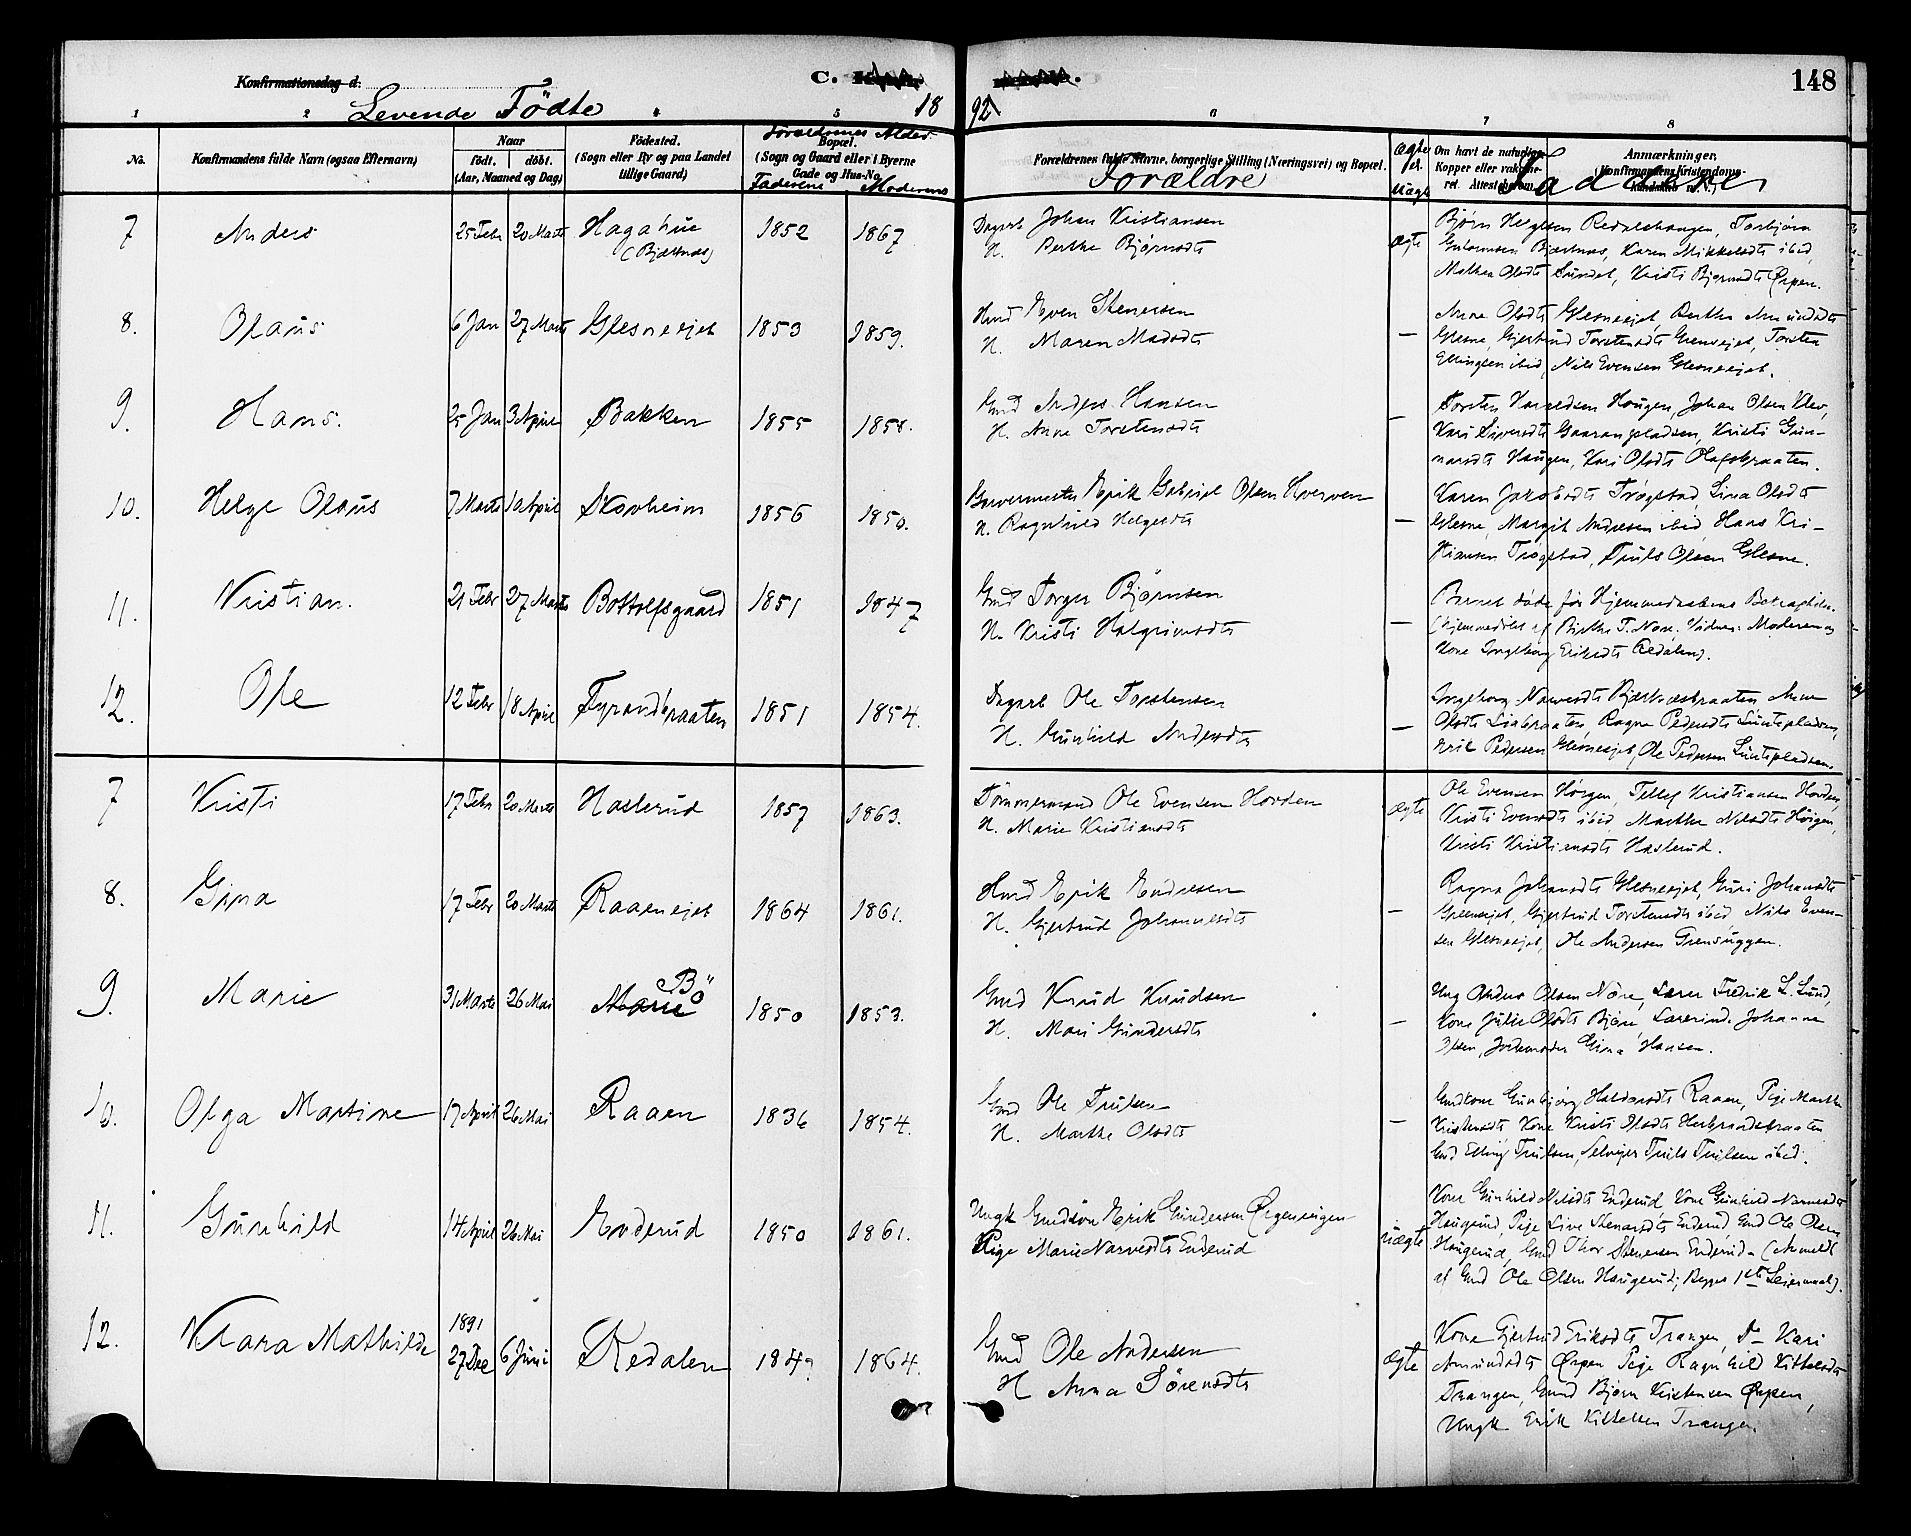 148
Konfirmationsdag d.
C.
Levende Födte
18 92
1 2 3 4 5 6 7 8
No.
Konfirmandens fulde Navn (ogsaa Efternavn)
Naar
födt. döbt.
(Aar, Maaned og Dag)
Födested.
(Sogn eller By og paa Landet
tillige Gaard)
Forældrenes Alder
Bopæl.
(Sogn og Gaard eller i Byerne
Gade og Hus-No.
Faderens Moderens
Forældrenes fulde Navne, borgerlige Stilling (Næringsvei) og Bopæl.
Forældre
ægte
el.
uægte
Om havt de naturlige
Kopper eller vaccine-
ret. Attestdatum
Anmærkninger.
(Konfirmandens Kristendoms-
kundskab m. v.)
Faddere
7 Anders 25 Febr 20 Marts Hagahue (Bjertnæs) 1852 1867
Dagarb Johan Kristiansen
H. Berthe Bjørnsdt
ægte
Bjørn Helgesen Redalshaugen, Torbjørn
Bjertnæs, Karen Mikkelsdt ibid,
Olsdt Sundet, Kristi Bjørnsdt Ørpen.
8. Olaus 6 Jan 27 Marts Glesneejet 1853 1859.
Husmd Even Stenersen
H. Maren Madsdt
—
Anne Olsdt Glesneejet, Berthe Amundsdt
Glesne, Gjertrud Torstensdt Grenseejet, Torsten
Ellingsen ibid, Nils Evensen Glesneejet.
9. Hans. 25 Jan 3 April Bakken 1855 1858.
Gmd Anders Hansen
H. Anne Torstensdt
—
Torsten Haraldsen Haugen, Johan Olsen Klev,
Kari Siversdt Gaarenpladsen, Kristi Gun-
narsdt Haugen, Kari Olsdt Olafsbraaten.
10. Helge Olaus 7 Marts 10 April Skovheim 1856 1850.
Garvermester Erik Gabriel Olsen Hverven
H. Ragnhild Helgesdt
—
Karen Jakobsdt Trøgstad, Lina Olsdt
Glesne, Margit Andresen ibid, Hans Kri-
stiansen Trøgstad, Truls Olsen Glesne.
11. Kristian. 21 Febr 27 Marts Bottolfsgaard 1851 1847
Gmd Torger Bjørnsen
H. Kristi Halgrimsdt
—
Barnet døde før Hjemmedaabens Bekræftelse.
(Hjemmedøbt af Birthe T. Nore. Vidner: Moderen og
Kone Ingeborg Eriksdt Redalen).
12. Ole 12 Febr 18 April Fyrandbraaten 1851 1854.
Dagarb Ole Torstensen
H. Gunhild Andersdt
—
Ingeborg Narvesdt Bjertnæsbraaten, Anne
Olsdt Liabraaten, Ragna Pedersdt Suntspladsen,
Erik Pedersen Glesneejet, Ole Pedersen Suntspladsen.
7 Kristi 17 Febr 20 Marts Haslerud 1857 1863.
Tömmermand Ole Evensen Hovden
H. Marie Kristiansdt
ægte
Ole Evensen Hörgen, Tellef Kristiansen Hovden,
Kristi Evensdt ibid, Marthe Nilsdt Hörgen,
Kristi Kristiansdt Haslerud.
8. Gina 17 Febr 20 Marts Raaenejet 1864 1861.
Husmd Erik Endresen
H. Gjertrud Johannesdt
—
Ragna Johansdt Glesneejet, Guri Johansdt
Grenseejet, Gjertrud Torstensdt ibid, Nils Even-
sen Glesneejet, Ole Andersen Grensuggen.
9. Marie 31 Marts 26 Mai Marie Bö 1850 1853.
Gmd Knud Knudsen
H. Mari Gundersdt
—
Ung Anders Olsen Nöre, Lærer Fredrik L. Lund,
Kone Julie Olsdt Björe, Lærerinde Johanne
Olsen, Jordemoder Gina Hansen.
10. Olga Martine 17 April 26 Mai Raaen 1836 1854.
Gmd Ole Trulsen
H. Marthe Olsdt
—
Gmdkone Gunbjörg Haldorsdt Raaen, Pige Marthe
Kristensdt Kone Kristi Olsdt Herbrandsbraaten
Gmd Elling Trulsen, Selveier Truls Trulsen ibid.
11. Gunhild 14 April 26 Mai Enderud 1850 1861.
Ungk Gmdsön Erik Gundersen Ørgeneiet
Pige Marie Narvesdt Enderud
uægte
Kone Gunhild Nilsdt Enderud, Kone Gunhild Narvesdt
Haugerud, Pige Live Stenersdt Enderud, Gmd Ole Olsen
Haugerud, Gmd Thor Stenersen Enderud. (Anmeldt
af Gmd Ole Olsen Haugerud; Begges 1ste Leiermaal).
12. Klara Mathilde 1891 27 Dec 6 Juni Redalen 1849 1864.
Gmd Ole Andersen
H Anna Sörensdt
ægte
Kone Gjertrud Eriksdt Trangen, D— Kari
Amundsdt Ørpen Pige Ragnhild Kittelsdt
Trangen, Gmd Björn Kristensen Ørpen,
Ungk Erik Kittelsen Trangen.